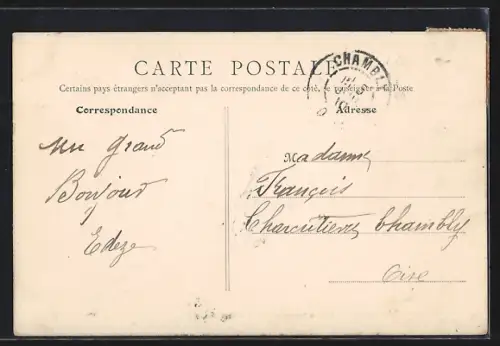 CHAMBLY
CARTE POSTALE
Certains pays étrangers n'acceptant pas la correspondance de ce côté, se renseigner à la Poste
Correspondance
Adresse
un grand
Bonjour
Edeze
Madame
François
Charcutière Chambly
Oise